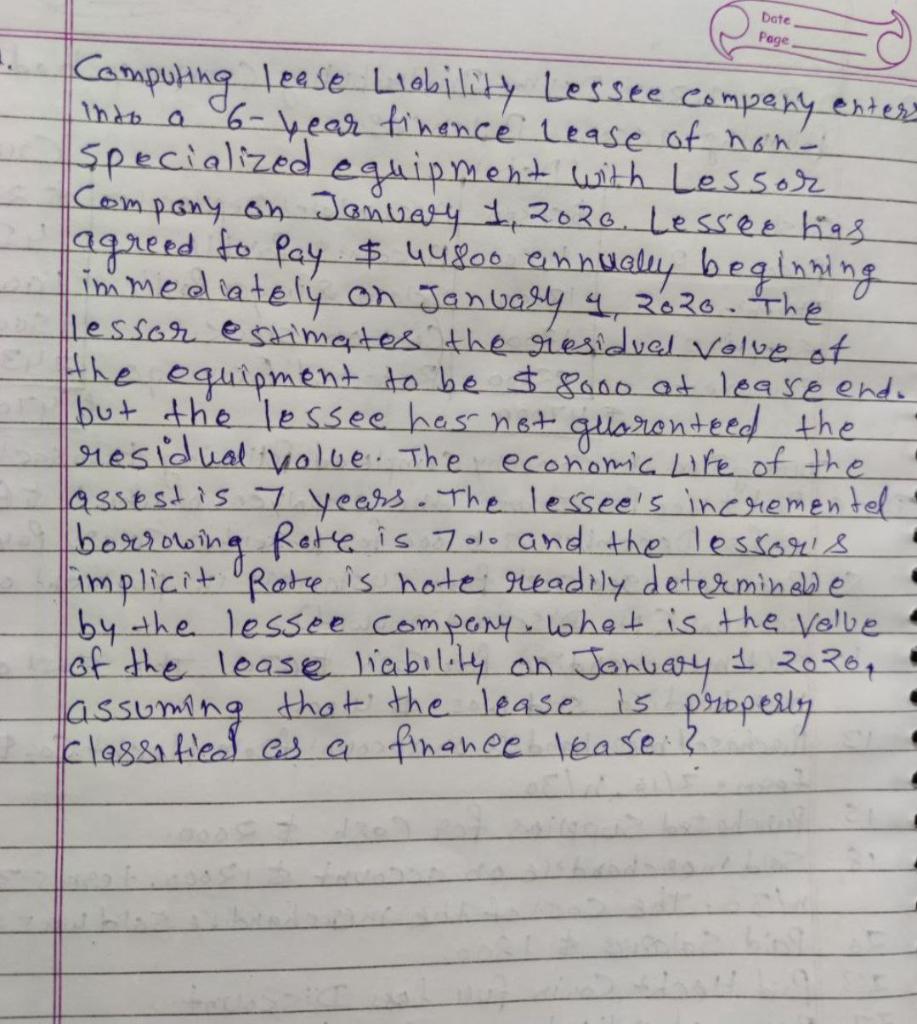 Date
Page
1.
Computing lease Liability Lessee company enters
into a 6-year finance lease of non-
specialized equipment with Lessor
Company on January 1, 2020. Lessee has
agreed to Pay $ 44800 annualey beginning
immediately on January 1, 2020. The
lessor estimates the residual value of
the equipment to be $ 8000 at lease end.
but the lessee has not guaronteed the
residual value. The economic Life of the
assest is 7 years. The lessee's incremental
borrowing Rate is 7% and the lessor's
implicit Rate is note readily determinable
by the lessee company. What is the value
of the lease liability on January 1 2020,
assuming that the lease is properly
classified as a finance lease ?